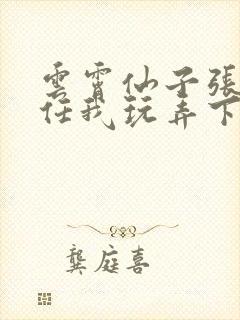 雲霄仙子張
任我玩弄下
龔庭喜